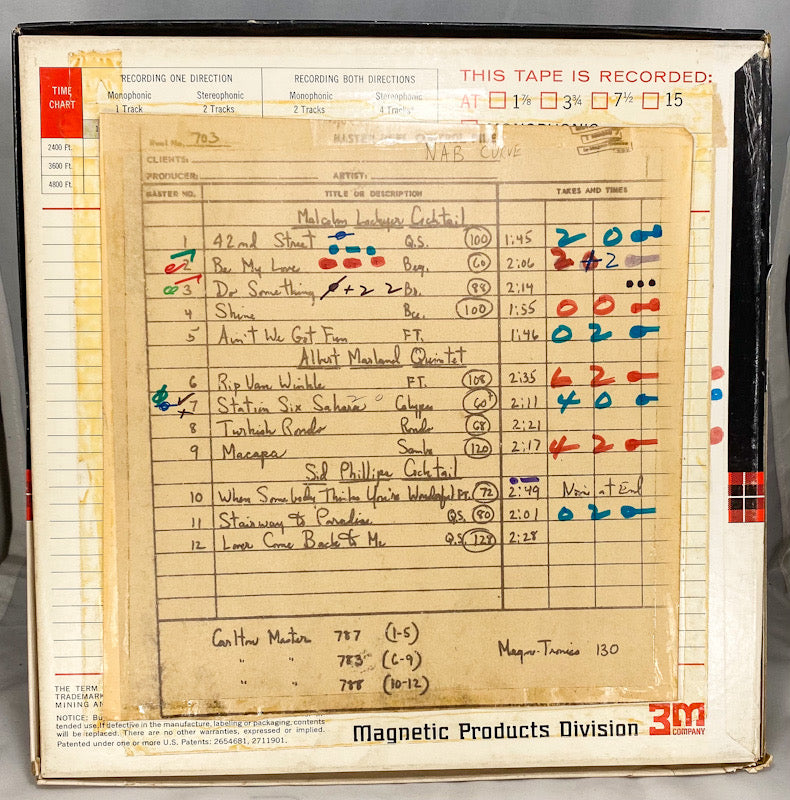 TIME CHART
RECORDING ONE DIRECTION
RECORDING BOTH DIRECTIONS
Monophonic 1 Track
Stereophonic 2 Tracks
Monophonic 2 Tracks
Stereophonic 4 Tracks
2400 Ft.
3600 Ft.
4800 Ft.
THIS TAPE IS RECORDED:
AT 1⅞ 3¾ 7½ 15
Reel No. 703
NAB CURVE
CLIENT:
PRODUCER: ARTIST:
MASTER NO. TITLE OR DESCRIPTION TAKES AND TIMES
Malcolm Lockyer Cocktail
1 42nd Street Q.S. 100 1:45 2 0
2 Be My Love Beg. 60 2:06 2 + 2
3 Do Something + 2 2 Bo. 88 2:14
4 Shine Bce. 100 1:55 0 0
5 Ain't We Got Fun FT. 1:46 0 2
Albert Marland Quintet
6 Rip Van Winkle FT. 108 2:35 6 2
7 Station Six Sahara Calypso 60+ 2:11 4 0
8 Turkish Rondo Rondo 68 2:21
9 Macapa Samba 120 2:17 4 2
Sid Phillips Cocktail
10 When Somebody Thinks You're Wonderful FT. 72 2:49 Noise at End
11 Stairway to Paradise Q.S. 80 2:01 0 2
12 Lover Come Back to Me Q.S. 128 2:28
Carlton Master 787 (1-5)
" " 783 (6-9)
" " 788 (10-12)
Magne-Tronics 130
THE TERM
TRADEMARK
MINING AN
NOTICE: Bu
tended use. If defective in the manufacture, labeling or packaging, contents
will be replaced. There are no other warranties, expressed or implied.
Patented under one or more U.S. Patents: 2654681, 2711901.
Magnetic Products Division 3M COMPANY